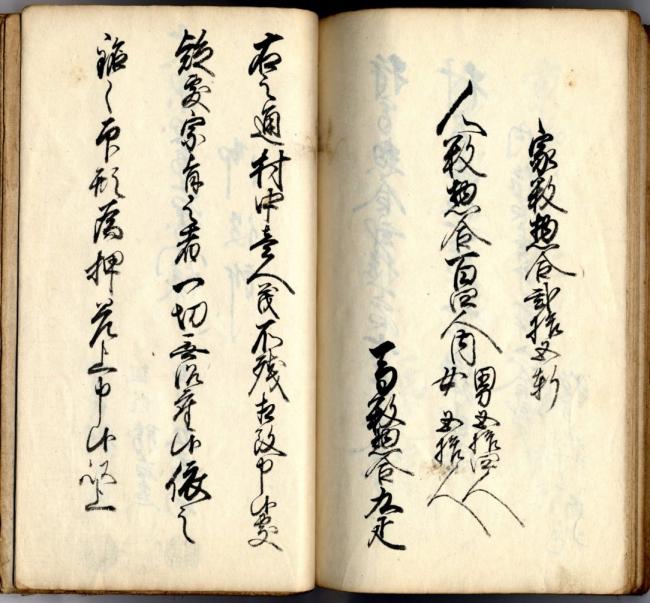 家数惣合弐拾五軒
人数惣合百四人内 男五拾四人
女五拾人
馬数惣合九疋
右之通村中壱人茂不残相改申候処
疑敷宗旨之者一切無御座候依之
銘々印形為押差上申候以上